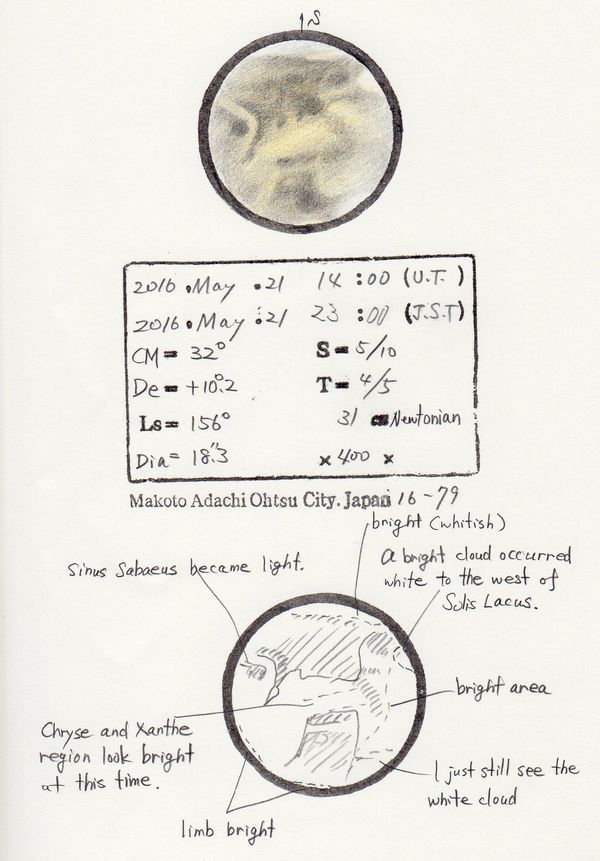 S
2016.May.21 14:00 (U.T.)
2016.May:21 23:00 (J.S.T)
CM= 32° S= 5/10
De= +10°.2 T= 4/5
Ls= 156° 31 cm Newtonian
Dia= 18".3 × 400 ×
Makoto Adachi Ohtsu City. Japan 16-79
bright (whitish)
Sinus Sabaeus became light.
A bright cloud occurred
white to the west of
Solis Lacus.
bright area
Chryse and Xanthe
region look bright
at this time.
I just still see the
white cloud
limb bright